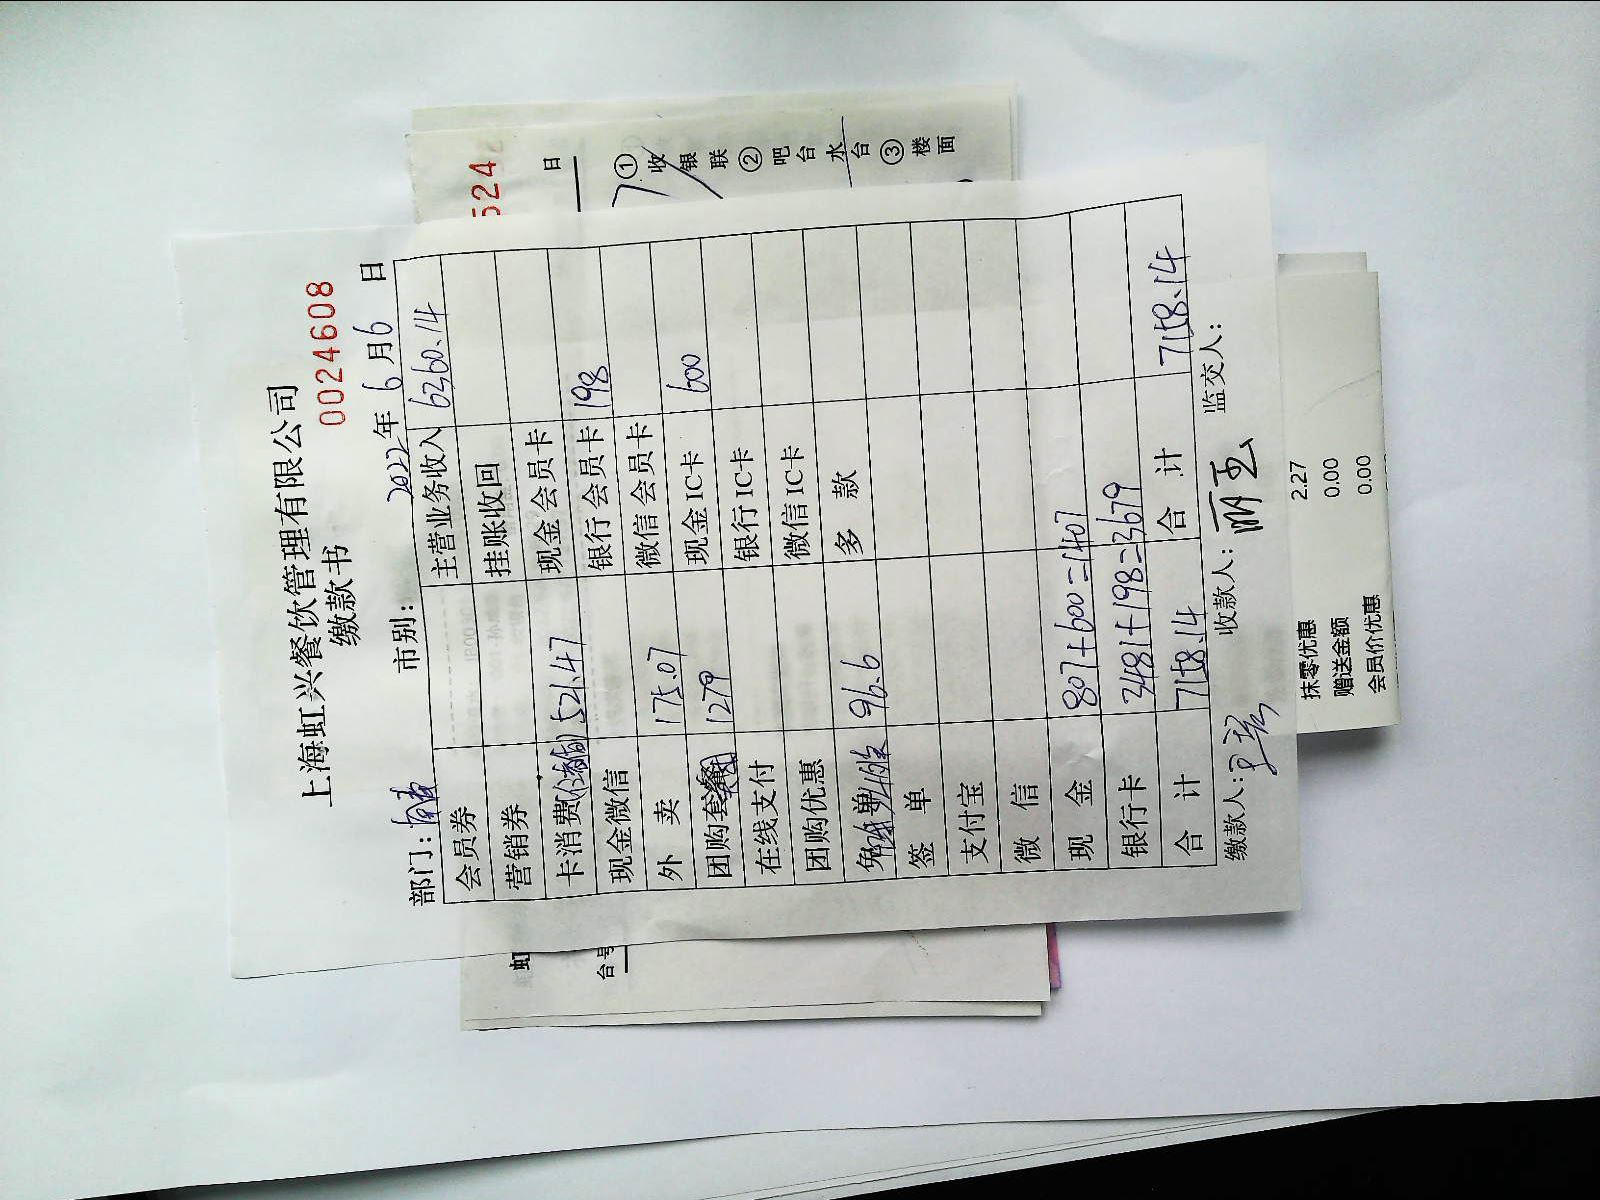 上海虹兴餐饮管理有限公司
缴款书 0024608
部门: 市别: 2022年6月6日
会员券 主营业务收入 6360.14
营销券 挂账收回
卡消费 521.47 现金会员卡
现金微信 银行会员卡 198
外卖 175.07 微信会员卡
团购套餐 1279 现金IC卡 600
在线支付 银行IC卡
团购优惠 微信IC卡
免单 96.6 多款
签单
支付宝
微信
现金 807+600=1407
银行卡 3481+198=3679
合计 7158.14 合计 7158.14
缴款人: 收款人: 监交人:
524
日
①收银联②吧台水台③楼面
虹
台号
抹零优惠 2.27
赠送金额 0.00
会员价优惠 0.00